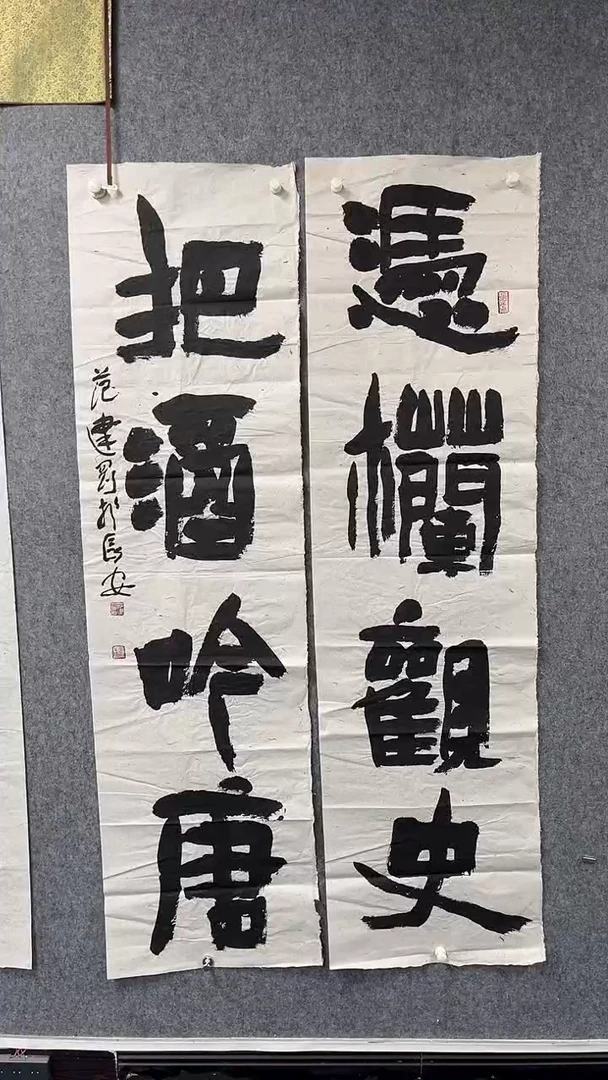 憑欄觀史
把酒吟唐
范建野於長安